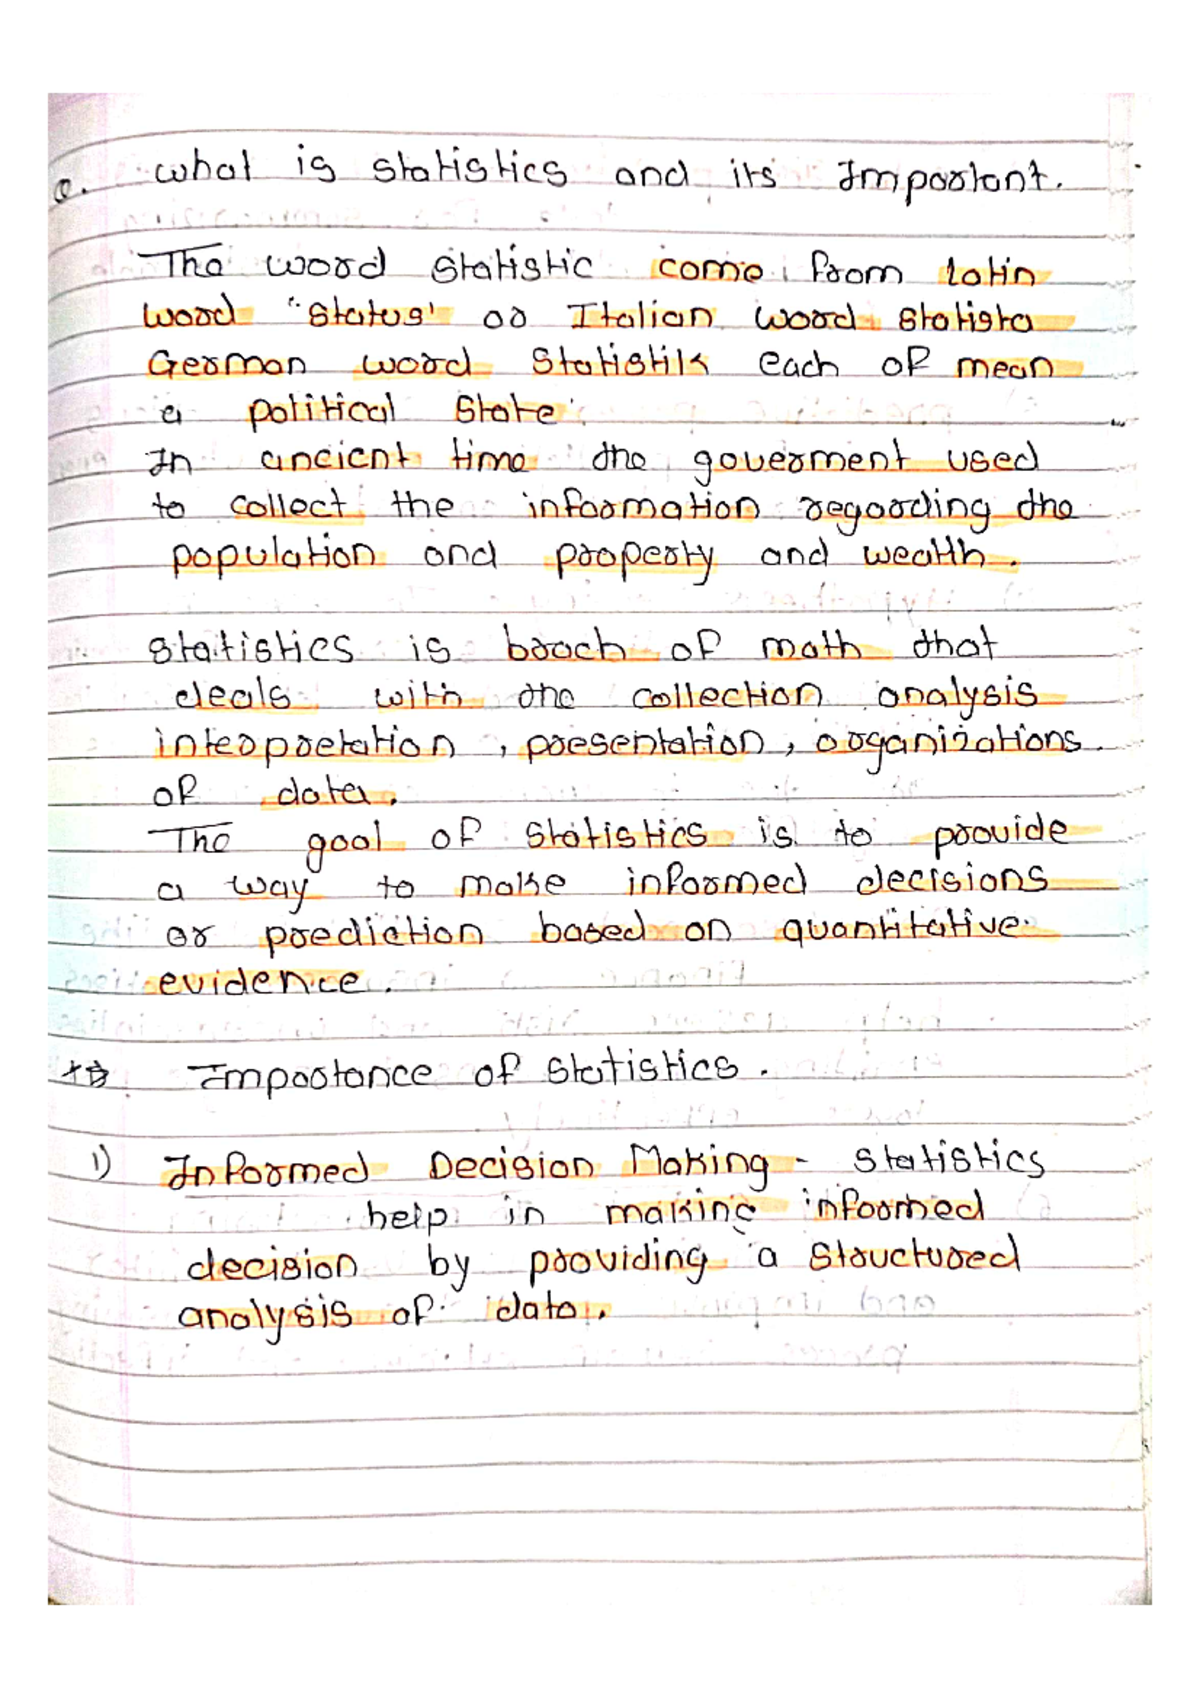 Q. what is statistics and its Important.
The word statistic come from latin
word "Status' or Italian word statista
German word Statistik each of mean
a political State
In ancient time the goverment used
to collect the information regarding the
population and property and wealth.
statistics is brach of math that
deals with the collection analysis
interpretation, presentation, organizations.
of data.
The goal of statistics is to provide
a way to make informed decisions
or prediction based on quantitative
evidence.
Importance of statistics.
1) Informed Decision Making - statistics
help in making informed
decision by providing a structured
analysis of data.